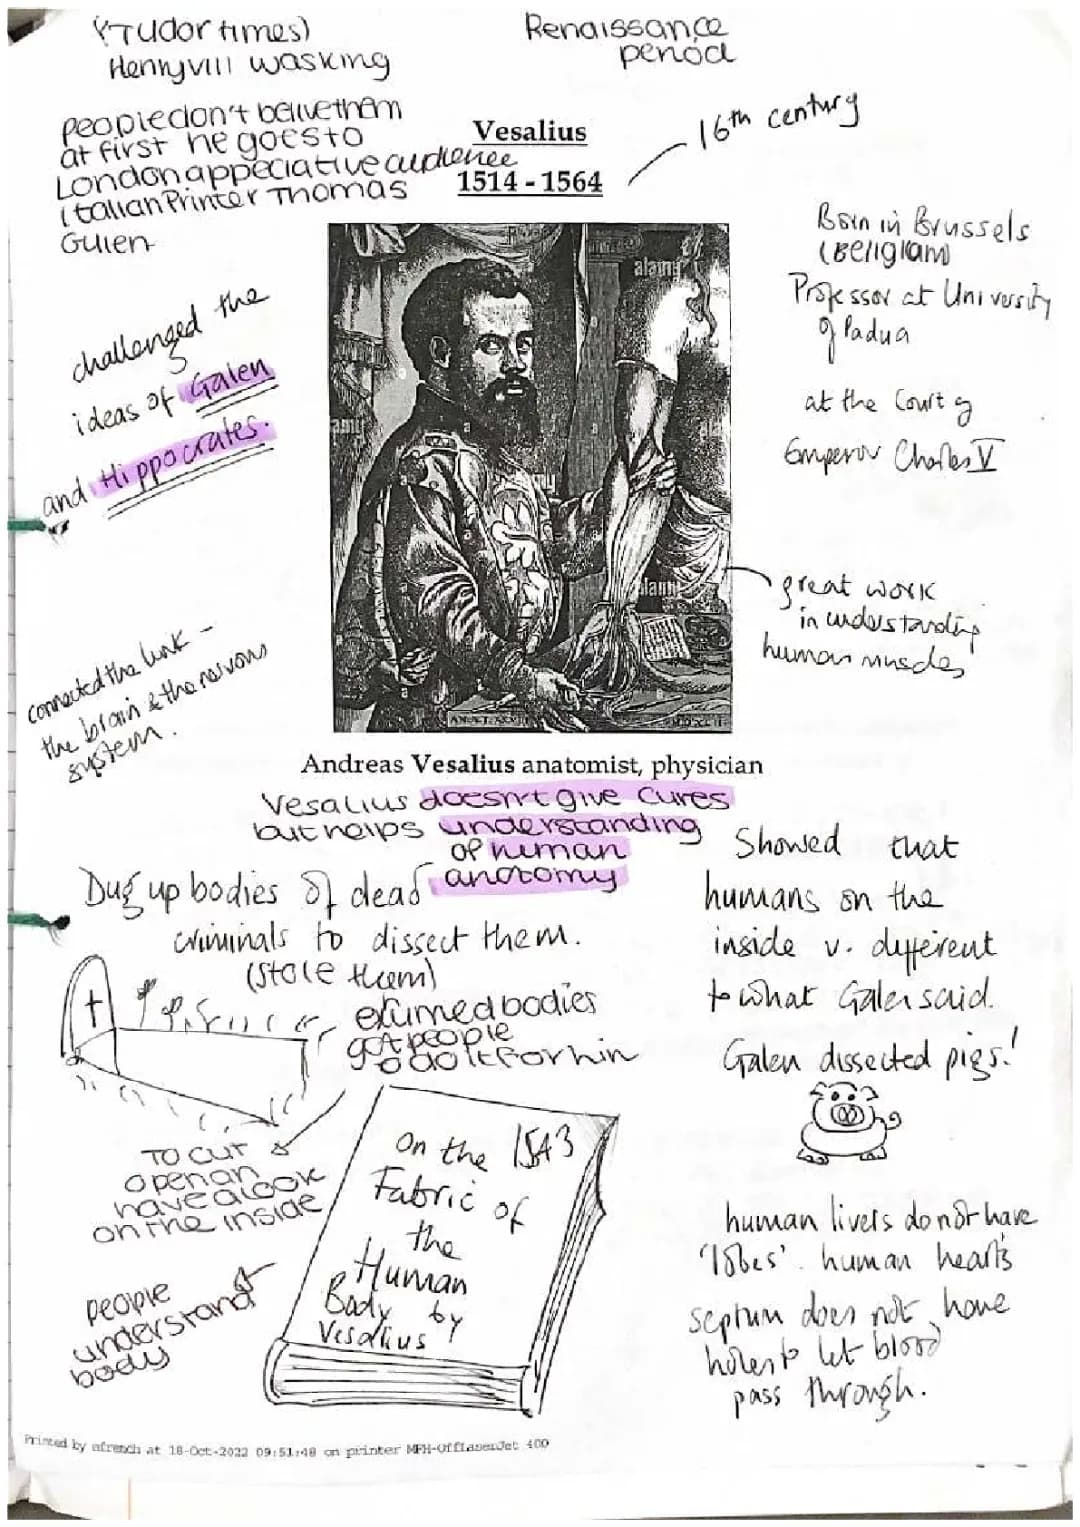 (Tudor times)
Henry VIII was king
Renaissance
period
people don't belive them
at first he goes to
London appeciative audience
Italian Printer Thomas
Guien
Vesalius
1514 - 1564
16th century
Born in Brussels
(Beligiam)
Professor at University
of Padua
at the Court of
Emperor Charles V
challenged the
ideas of Galen
and Hippocrates.
alamy
great work
in understanding
human muscles
connected the link -
the brain & the nervous
system.
Andreas Vesalius anatomist, physician
Vesalius doesn't give cures
but helps understanding
of human
anotomy
Dug up bodies of dead
criminals to dissect them.
(stole them)
exumed bodies
got people
to do it for him
Showed that
humans on the
inside v. different
to what Galen said.
Galen dissected pigs!
To cut
open an
have a look
on the inside
On the 1543
Fabric of
the
Human
Body by
Vesalius
people
understand
body
human livers do not have
'lobes'. human hearts
septum does not have
holes to let blood
pass through.
Printed by efrench at 18-Oct-2022 09:51:48 on printer MFH-OfflaserJet 400